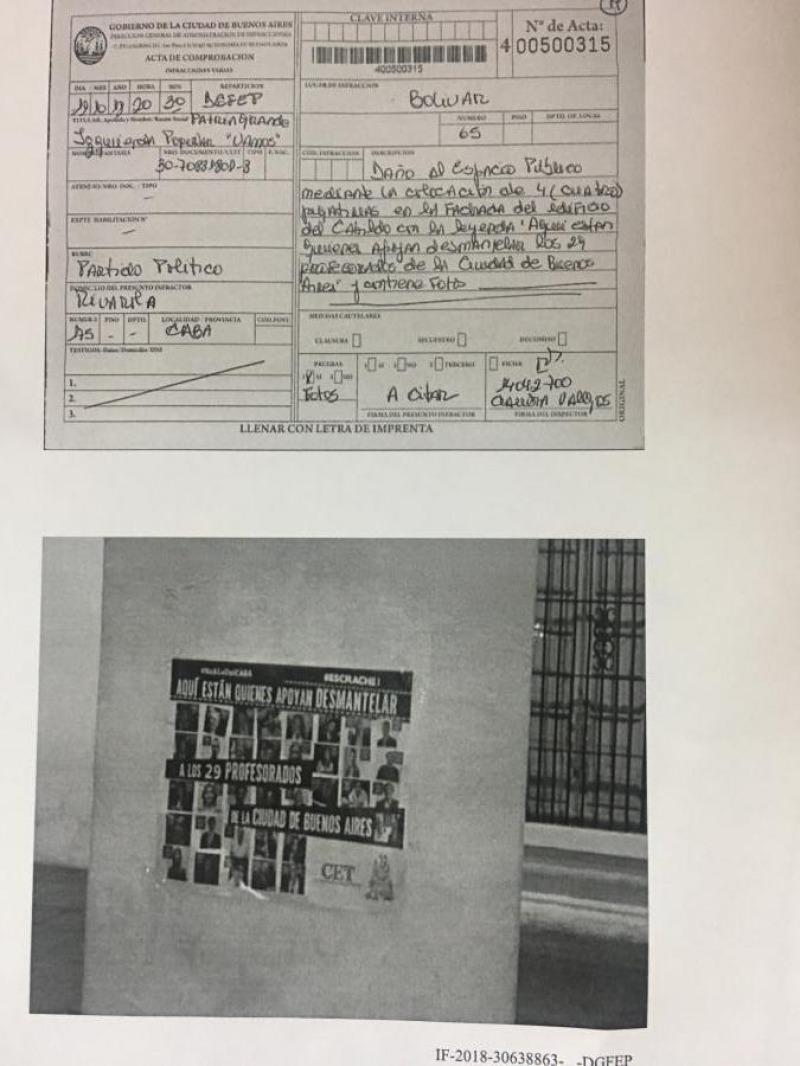 GOBIERNO DE LA CIUDAD DE BUENOS AIRES
DIRECCION GENERAL DE ADMINISTRACION DE INFRACCIONES
ACTA DE COMPROBACION
INFRACCIONES VARIAS
CLAVE INTERNA
400500315
Nº de Acta:
4 00500315
DIA MES AÑO HORA MIN REPARTICION
20 30 DGFEP
PATRIA GRANDE
Izquierda Popular "Vamos"
EXPTE HABILITACION Nº
RUBRO
Partido Politico
DOMICILIO DEL PRESUNTO INFRACTOR
NUMERO PISO DPTO. LOCALIDAD / PROVINCIA COD.POST.
CABA
TESTIGOS: Datos/Domicilio/DNI
1.
2.
3.
LUGAR DE INFRACCION
BOLIVAR
NUMERO PISO DPTO. OF. LOCAL
65
COD. INFRACCION DESCRIPCION
Daño al Espacio Publico
mediante la colocación de 4 (cuatro)
en la Fachada del edificio
del Cabildo con la leyenda "Aqui estan
quienes apoyan desmantelar los 29
profesorados" de la Ciudad de Buenos
Aires" y contiene Foto
MEDIDAS CAUTELARES
CLAUSURA SECUESTRO DECOMISO
PRUEBAS
SI NO
Fotos
SI NO TERCERO
A citar
FIRMA DEL PRESUNTO INFRACTOR
FICHA
FIRMA DEL INSPECTOR
ORIGINAL
LLENAR CON LETRA DE IMPRENTA
#ESCRACHE!
AQUÍ ESTÁN QUIENES APOYAN DESMANTELAR
A LOS 29 PROFESORADOS
DE LA CIUDAD DE BUENOS AIRES
CET
IF-2018-30638863- -DGFEP